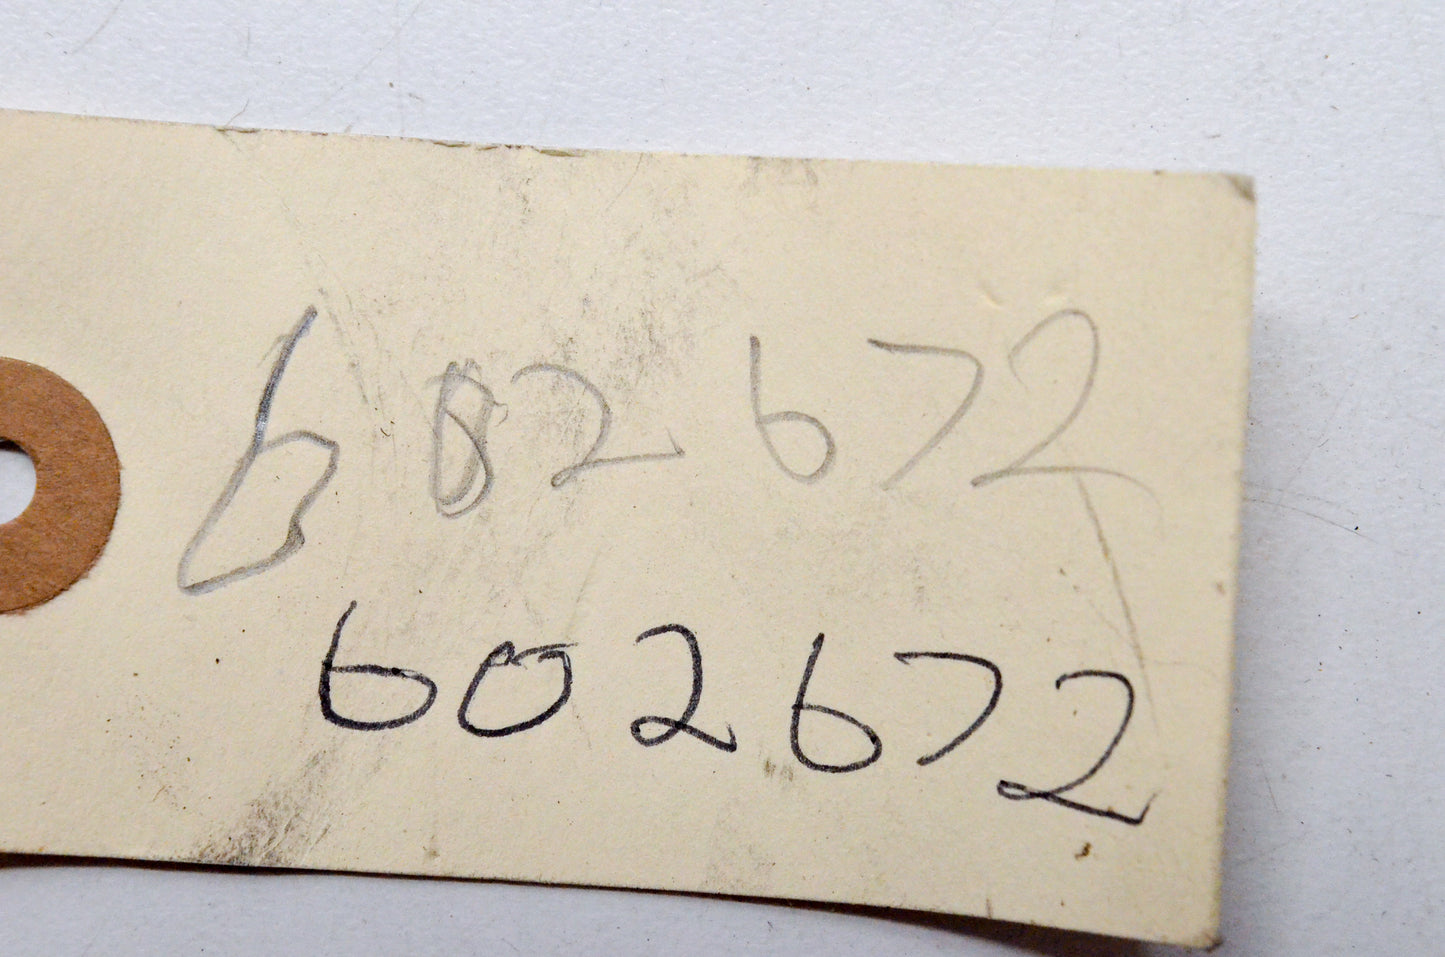 602672
602672